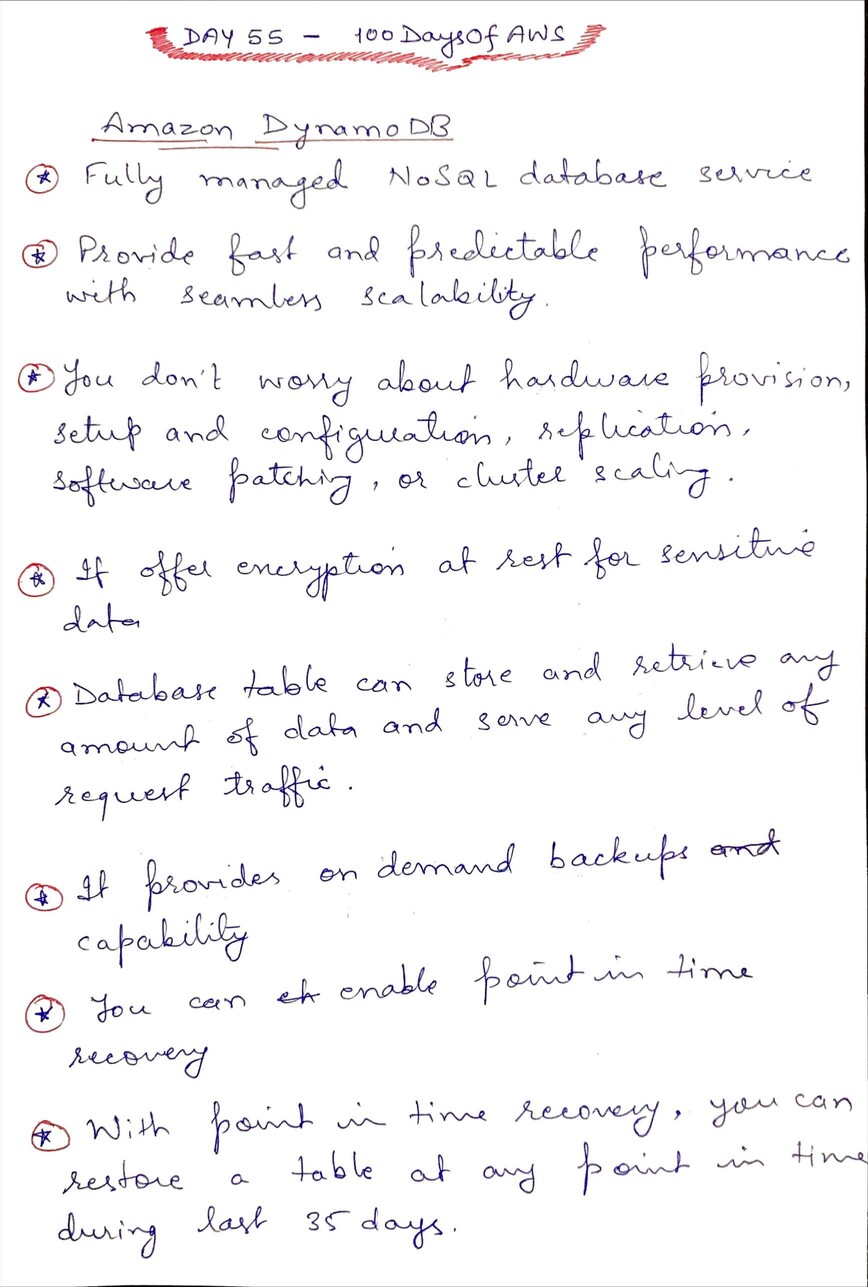 DAY 55 - 100DaysOf AWS
Amazon DynamoDB
Fully managed NoSQL database service
Provide fast and predictable performance
with seamless scalability.
You don't worry about hardware provision,
setup and configuration, replication,
software patching, or cluster scaling.
It offer encryption at rest for sensitive
data
Database table can store and retrieve any
amount of data and serve any level of
request traffic.
It provides on demand backups and
capability
You can enable point in time
recovery
With point in time recovery, you can
restore a table at any point in time
during last 35 days.